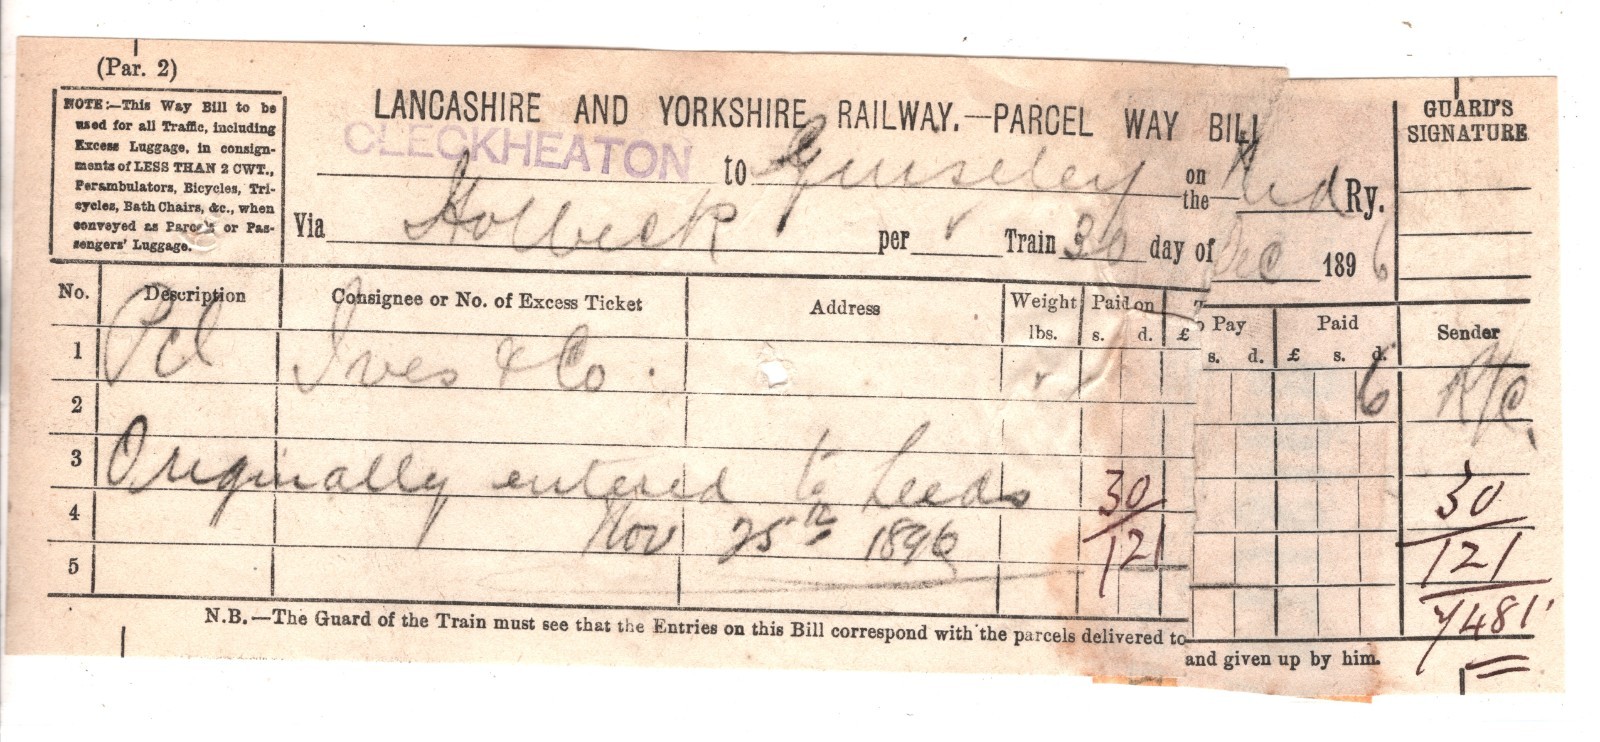 (Par. 2)
NOTE:—This Way Bill to be
used for all Traffic, including
Excess Luggage, in consign-
ments of LESS THAN 2 CWT.,
Perambulators, Bicycles, Tri-
cycles, Bath Chairs, &c., when
conveyed as Parcels or Pas-
sengers' Luggage.
LANCASHIRE AND YORKSHIRE RAILWAY.—PARCEL WAY BILL
GUARD'S
SIGNATURE
CLECKHEATON
to Guiseley on the Mid Ry.
Via Holbeck per Train 30 day of Dec 1896
No. Description Consignee or No. of Excess Ticket Address Weight lbs. Paid on s. d. £ Pay s. d. Paid £ s. d. Sender
1 Pcl Ives & Co. 6
2
3 Originally entered to Leeds 30 30
4 Nov 25th 1896 121 121
5 7481
N.B.—The Guard of the Train must see that the Entries on this Bill correspond with the parcels delivered to
and given up by him.